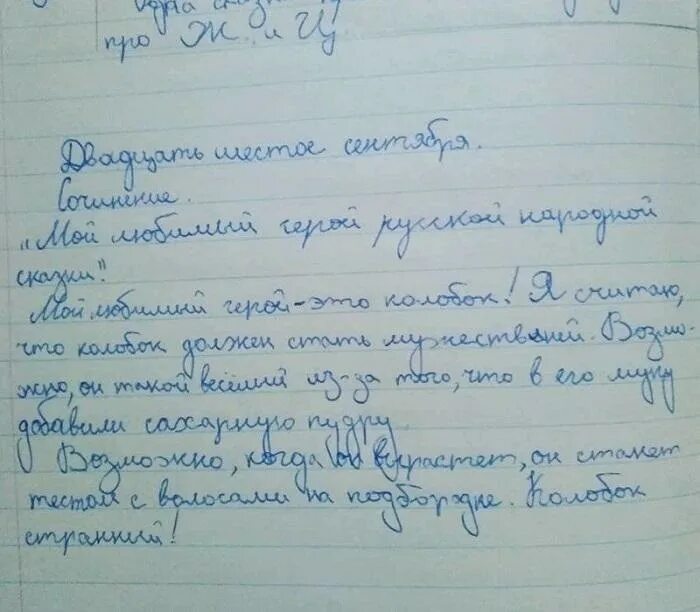 одна сказка
про Ж и Ц
Двадцать шестое сентября.
Сочинение.
"Мой любимый герой русской народной
сказки".
Мой любимый герой-это колобок! Я считаю,
что колобок должен стать мужественей. Возмо-
жно, он такой весёлый из-за того, что в его муку
добавили сахарную пудру.
Возможно, когда он вырастет, он станет
тестом с волосами на подбородке. Колобок
странный!